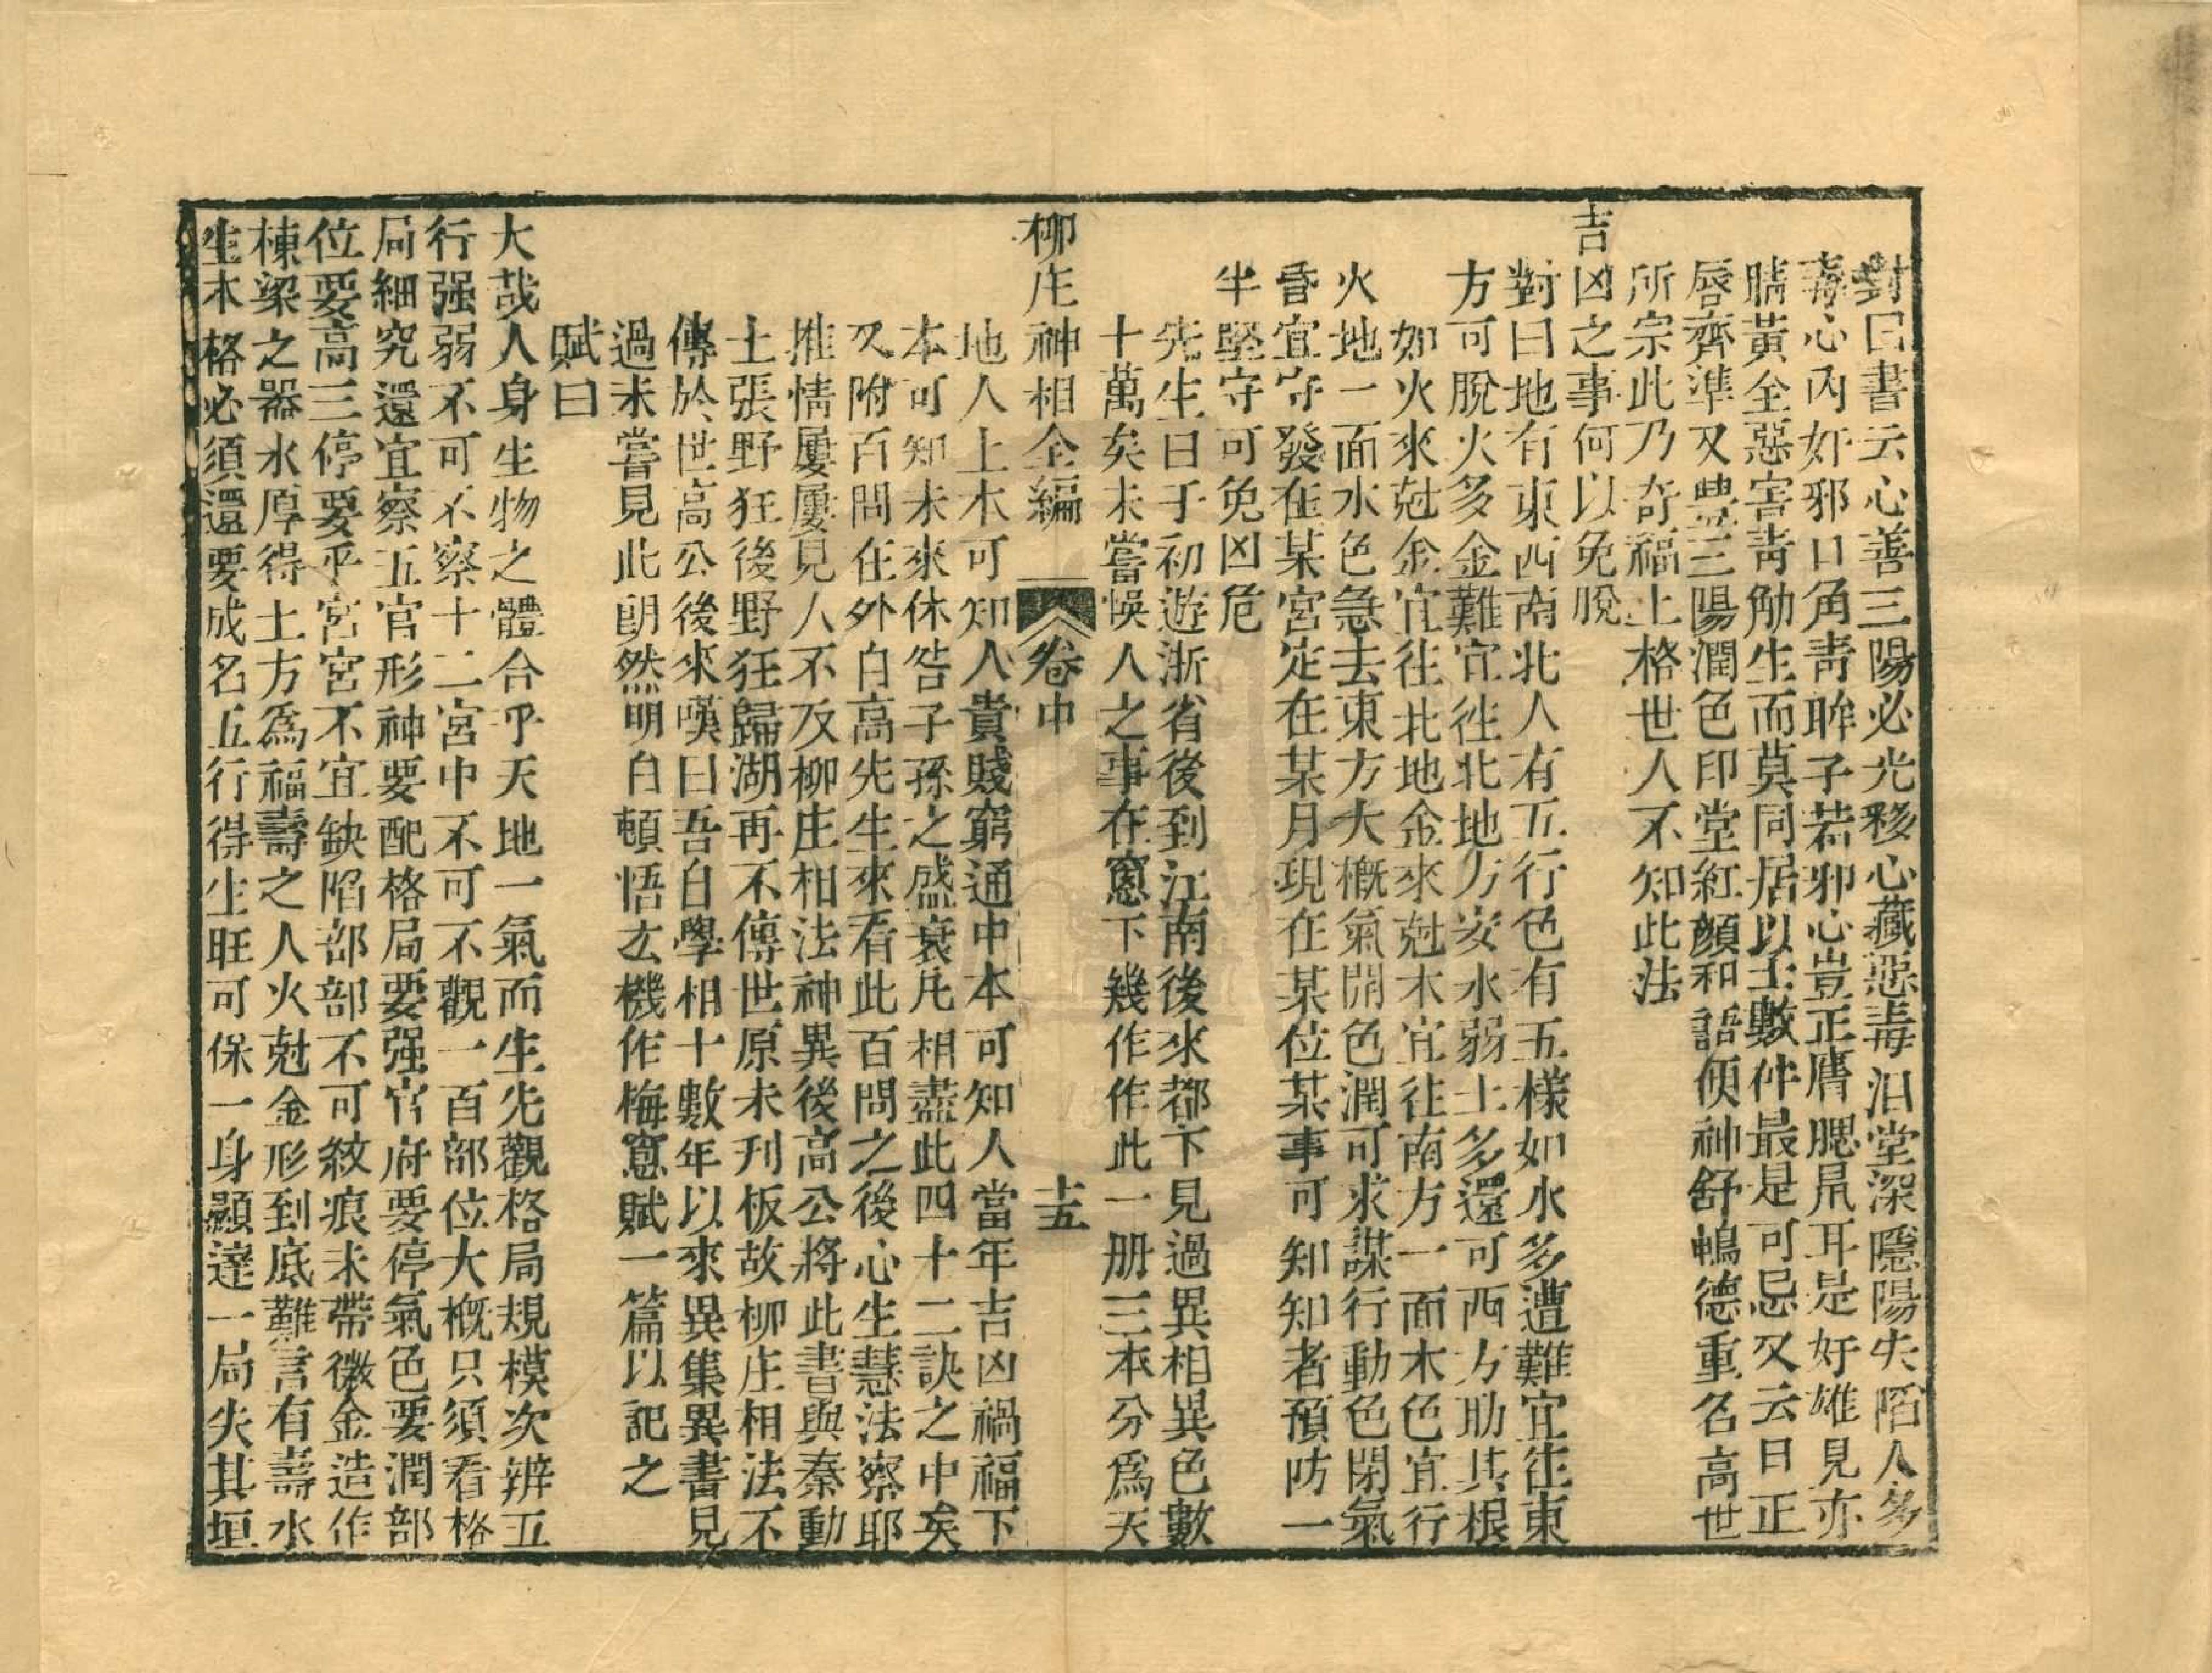 對曰書云心善三陽必光彩心藏惡毒泪堂深隱陽失陷人多
毒心內奸邪口角靑眸子若邪心豈正鷹腮鼠耳是奸雄見亦
睛黃全惡害靑觔生而莫同居以上數件最是可忌又云日正
唇齊準又豊三陽潤色印堂紅顏和語便神舒鳩德重名高世
所宗此乃奇福上格世人不知此法
吉凶之事何以免脫
對曰地有東西南北人有五行色有五樣如水多遭難宜往東
方可脫火多金難宜往北地方安水弱土多還可西方助其根
如火來尅金宜往北地金來尅木宜往南方一面木色宜行
火地一面水色急去東方大概氣開色潤可求謀行動色閉氣
昏宜守發在某宮定在某月現在某位某事可知知者預防一
半堅守可免凶危
先生曰予初遊浙省後到江南後來都下見過異相異色數
十萬矣未嘗悞人之事在窻下幾作作此一册三本分爲天
柳庄神相全編 卷中 十五
地人上本可知人貴賤窮通中本可知人當年吉凶禍福下
本可知未來休咎子孫之盛衰凡相盡此四十二訣之中矣
又附百問在外白高先生來看此百問之後心生慧法察耶
推情屢屢見人不及柳庄相法神異後高公將此書與秦動
士張野狂後野狂歸湖再不傳世原未刋板故柳庄相法不
傳於世高公後來嘆曰吾自學相十數年以來異集異書見
過未嘗見此朗然明白頓悟玄機作梅窻賦一篇以記之
賦曰
大哉人身生物之體合乎天地一氣而生先觀格局規模次辨五
行强弱不可不察十二宮中不可不觀一百部位大概只須看格
局細究還宜察五官形神要配格局要强官府要停氣色要潤部
位要高三停要平宮宮不宜缺陷部部不可紋痕未帶微金造作
棟梁之器水厚得土方爲福壽之人火尅金形到底難言有壽水
生木格必須還要成名五行得生旺可保一身顯達一局失其垣